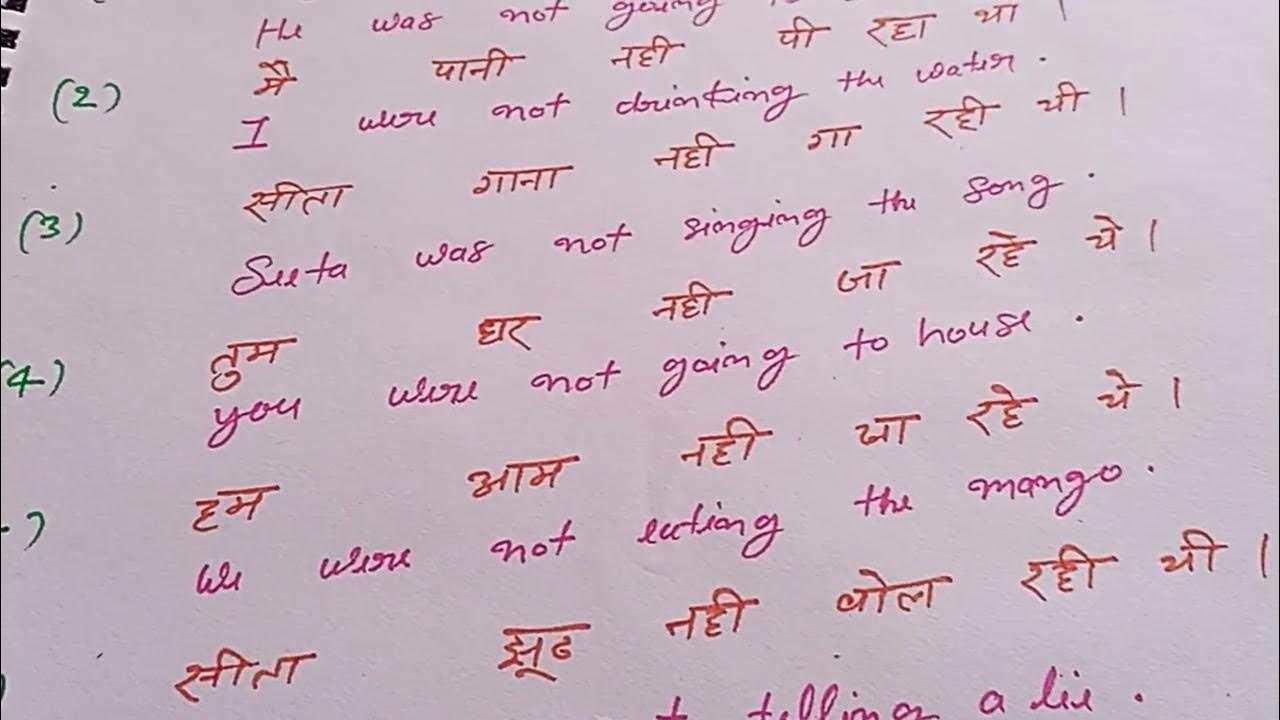 He was not going
(2) मै पानी नही पी रहा था ।
I were not drinking the water.
(3) सीता गाना नही गा रही थी ।
Seeta was not singing the song.
(4) तुम घर नही जा रहे थे ।
you were not going to house.
हम आम नही खा रहे थे ।
we were not eating the mango.
सीता झूढ नही बोल रही थी ।
telling a lie.